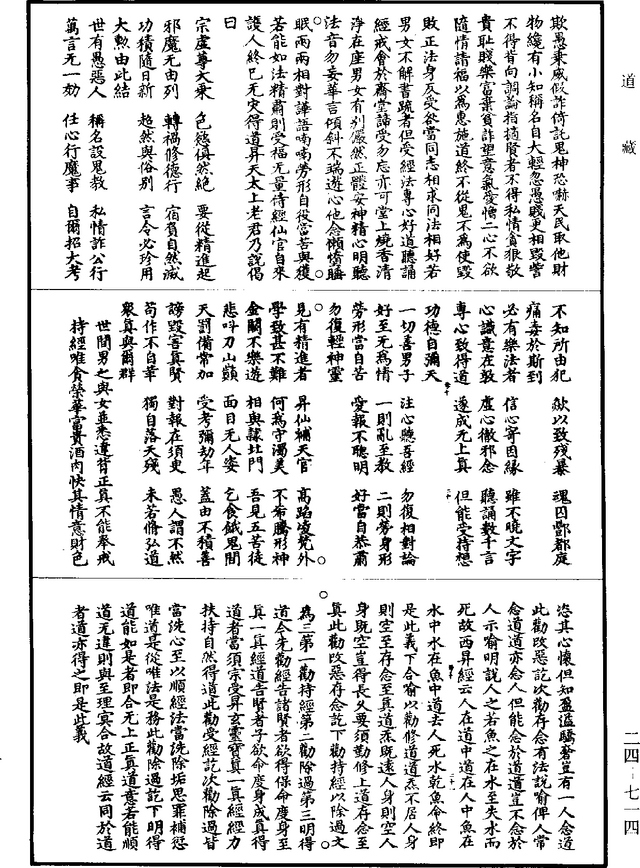 道藏
欺愚秉威假詐倚託鬼神恐嚇天民取他財
物纔有小知稱名自大輕忽愚賤更相毀訾
不得背向調論指摘賢者不得私情貪狠敬
貴恥賤樂富棄貧詐望意氣愛憎二心不欲
隨情請福以為惠施道終不從鬼不為使毀
敗正法身反受欲當同志相求同法相好若
男女不解書疏者但受經法專心好道聽誦
經戒會於齋堂諦受勿忘亦可堂上燒香清
淨在座男女有別嚴然正體安神精心明聽
法音勿妄華言傾斜不端遊心他念懶惰瞌
眠兩兩相對譁語喃喃勞形自役當苦與獲
若能如法精肅則受福无量侍經仙官自來
護人終已无灾得道昇天太上老君乃說偈
曰
宗虛尊大乘　色慾俱然絕　要從精進起
邪魔无由列　轉禍修德行　宿質自然滅
功積隨日新　超然與俗別　言令必珍用
大勲由此結
世有愚惡人　稱名設鬼教　私情詐公行
萬言无一効　任心行魔事　自爾招大考
不知所由犯　歘以致殘暴　魂囚酆都庭
痛毒於斯到
必有樂法者　信心寄因緣　雖不曉文字
心識意在敬　虛心徹邪念　聽誦數千言
專心致得道　遂成无上真　但能受持想
功德自彌天
一切善男子　注心聽吾經　勿復相對論
好至无為情　一則亂至教　二則勞身形
勞形當自苦　愛報不聰明　好當自恭肅
勿復輕神靈
見有精進者　昇仙補天官　高陷凌梵外
學致甚不難　何為守濁炅　不希騰形神
金闕不樂遊　相與謀圡門　吾見五苦徒
悲吟刀山巔　面目无人姿　乞食餓鬼間
天罰備常加　受考彌劫年　蓋由不積善
謗毀害真賢　對報在須臾　愚人謂不然
苟作不自華　獨自落天殘　未若脩弘道
衆真與爾群
世間男之與女並悉違背正真不能奉戒
持經唯貪榮華富貴酒肉快其情意財色
恣其心懷但知盈溢驕奢豈有一人念道
此勸改惡訖次勸存念有法說喻俾人常
念道道亦念人但能念於道道豈不念於
人示喻明說人之若魚之在水至失水而
死故西昇經云人在道中道在人中魚在
水中水在魚中道去人死水乾魚命終即
是此義下合喻以勸修道道炁不居人身
則空至存念至真道炁既遠人身則空人
身既空豈得長久要須勤修上道存念至
真此勸改惡存念訖下勸持經以除過文
為三第一勸持經第二勸除過第三明得
道今先勸經告諸賢者欲得保命度身至
真一真經道告賢者子欲命度身成真得
道者當須宗受昇玄靈寶真一真經經力
扶持自然得道此勸受經訖次勸除過甘
當洗心至以順經法當洗除垢思罪補愆
唯道是從唯法是務此勸除過訖下明得
道能如是者即合无上正真道意若能順
道无違則與至理冥合故道經云同於道
者道亦得之即是此義
二四-七一四